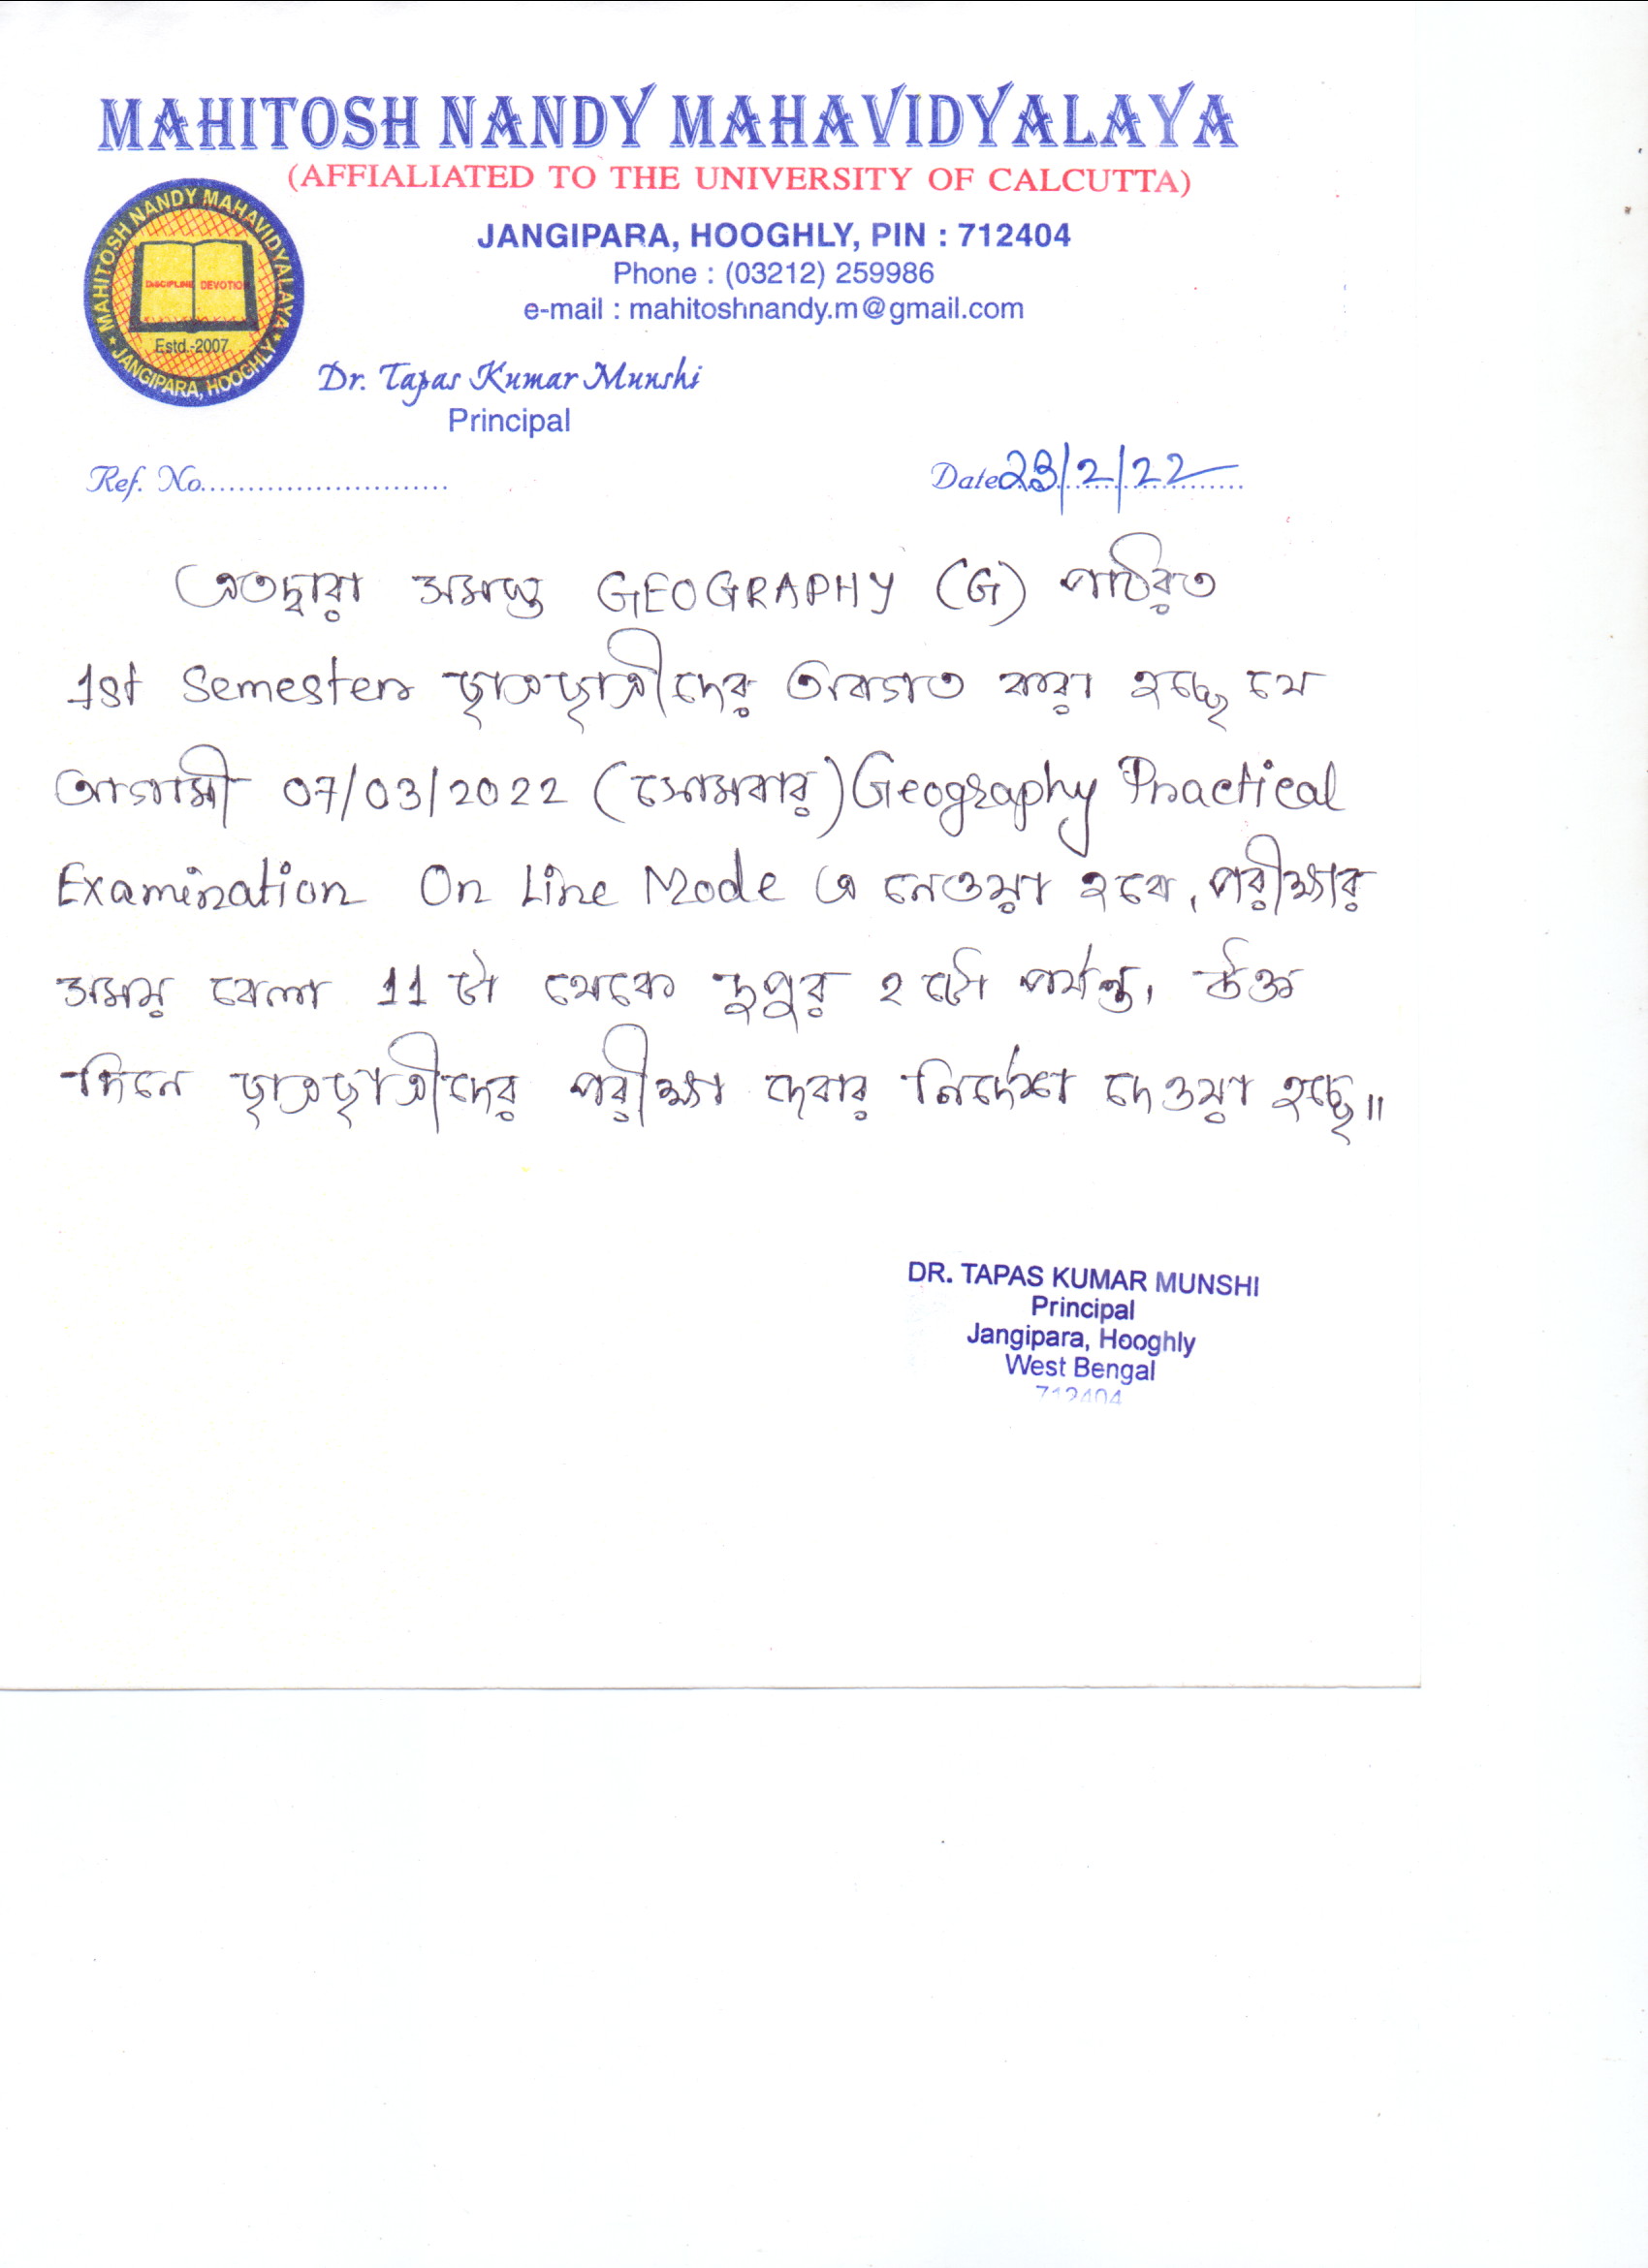 MAHITOSH NANDY MAHAVIDYALAYA
(AFFIALIATED TO THE UNIVERSITY OF CALCUTTA)
MAHITOSH NANDY MAHAVIDYALAYA
DISCIPLINE DEVOTION
Estd.-2007
JANGIPARA, HOOGHLY
JANGIPARA, HOOGHLY, PIN : 712404
Phone : (03212) 259986
e-mail : mahitoshnandy.m@gmail.com
Dr. Tapas Kumar Munshi
Principal
Ref. No.......................... Date 23/2/22
এতদ্বারা সমস্ত GEOGRAPHY (G) পাঠরত
1st Semester ছাত্রছাত্রীদের অবগত করা হচ্ছে যে
আগামী 07/03/2022 (সোমবার) Geography Practical
Examination On Line Mode এ নেওয়া হবে, পরীক্ষার
সময় বেলা 11 টা থেকে দুপুর ২ টো পর্যন্ত। উক্ত
দিনে ছাত্রছাত্রীদের পরীক্ষা দেবার নির্দেশ দেওয়া হচ্ছে॥
DR. TAPAS KUMAR MUNSHI
Principal
Jangipara, Hooghly
West Bengal
712404